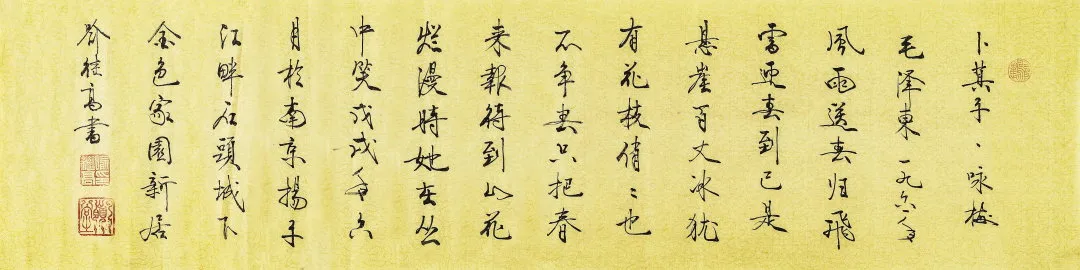 卜算子·咏梅
毛泽東一九六一年
風雨送春归飛
雪迎春到已是
悬崖百丈冰犹
有花枝俏〻也
不争春只把春
来報待到山花
烂漫時她在丛
中笑戊戌年六
月於南京揚子
江畔石頭城下
金色家園新居
高書